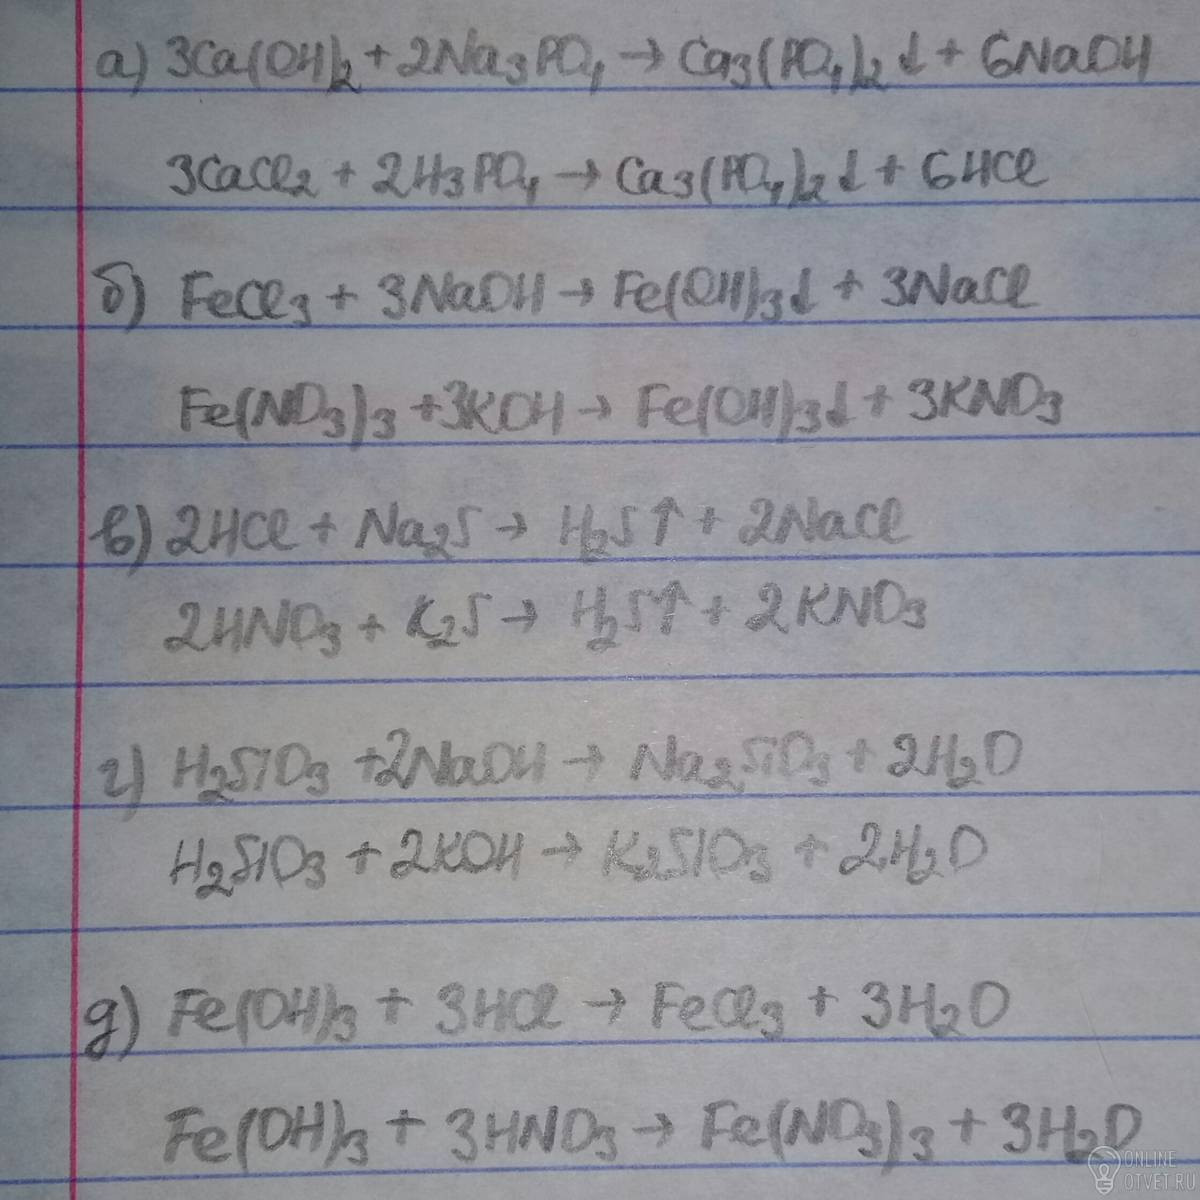 а) 3Ca(OH)₂ + 2Na₃PO₄ → Ca₃(PO₄)₂↓ + 6NaOH
3CaCl₂ + 2H₃PO₄ → Ca₃(PO₄)₂↓ + 6HCl
б) FeCl₃ + 3NaOH → Fe(OH)₃↓ + 3NaCl
Fe(NO₃)₃ + 3KOH → Fe(OH)₃↓ + 3KNO₃
в) 2HCl + Na₂S → H₂S↑ + 2NaCl
2HNO₃ + K₂S → H₂S↑ + 2KNO₃
г) H₂SiO₃ + 2NaOH → Na₂SiO₃ + 2H₂O
H₂SiO₃ + 2KOH → K₂SiO₃ + 2H₂O
д) Fe(OH)₃ + 3HCl → FeCl₃ + 3H₂O
Fe(OH)₃ + 3HNO₃ → Fe(NO₃)₃ + 3H₂O
ONLINE
OTVET.RU